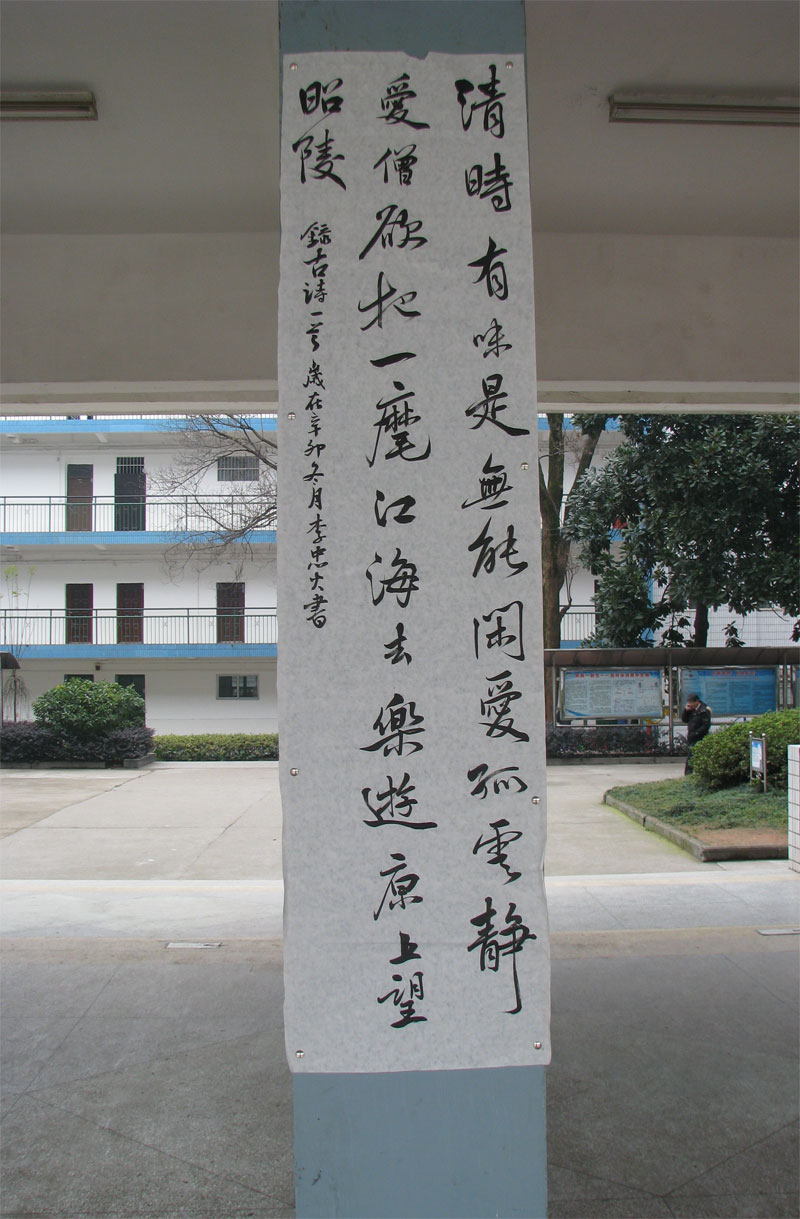 清時有味是無能閑愛孤雲靜
愛僧欲把一麾江海去樂遊原上望
昭陵
錄古詩一首歲在辛卯冬月李忠火書